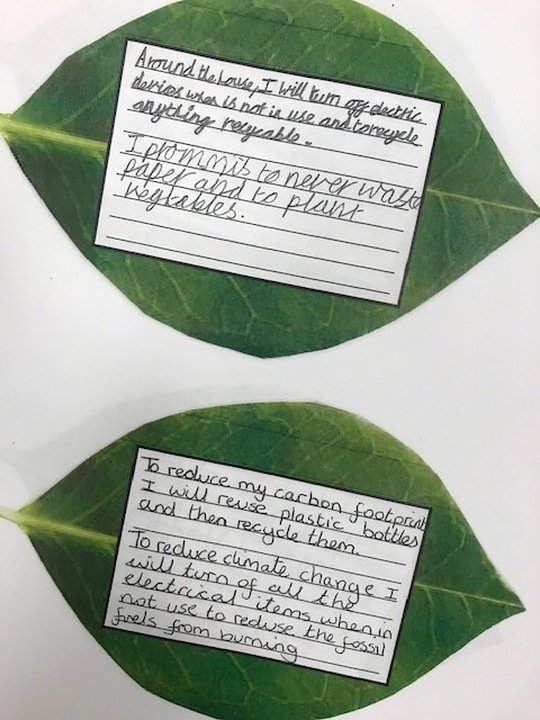 Around the house, I will turn off electric
devises when is not in use and to recycle
anything recycable.
I prommis to never waste
paper and to plant
vegtables.
To reduce my carbon footprint
I will reuse plastic bottles
and then recycle them.
To reduce climate change I
will turn of all the
electrical items when in
not use to reduse the fossil
fuels from burning